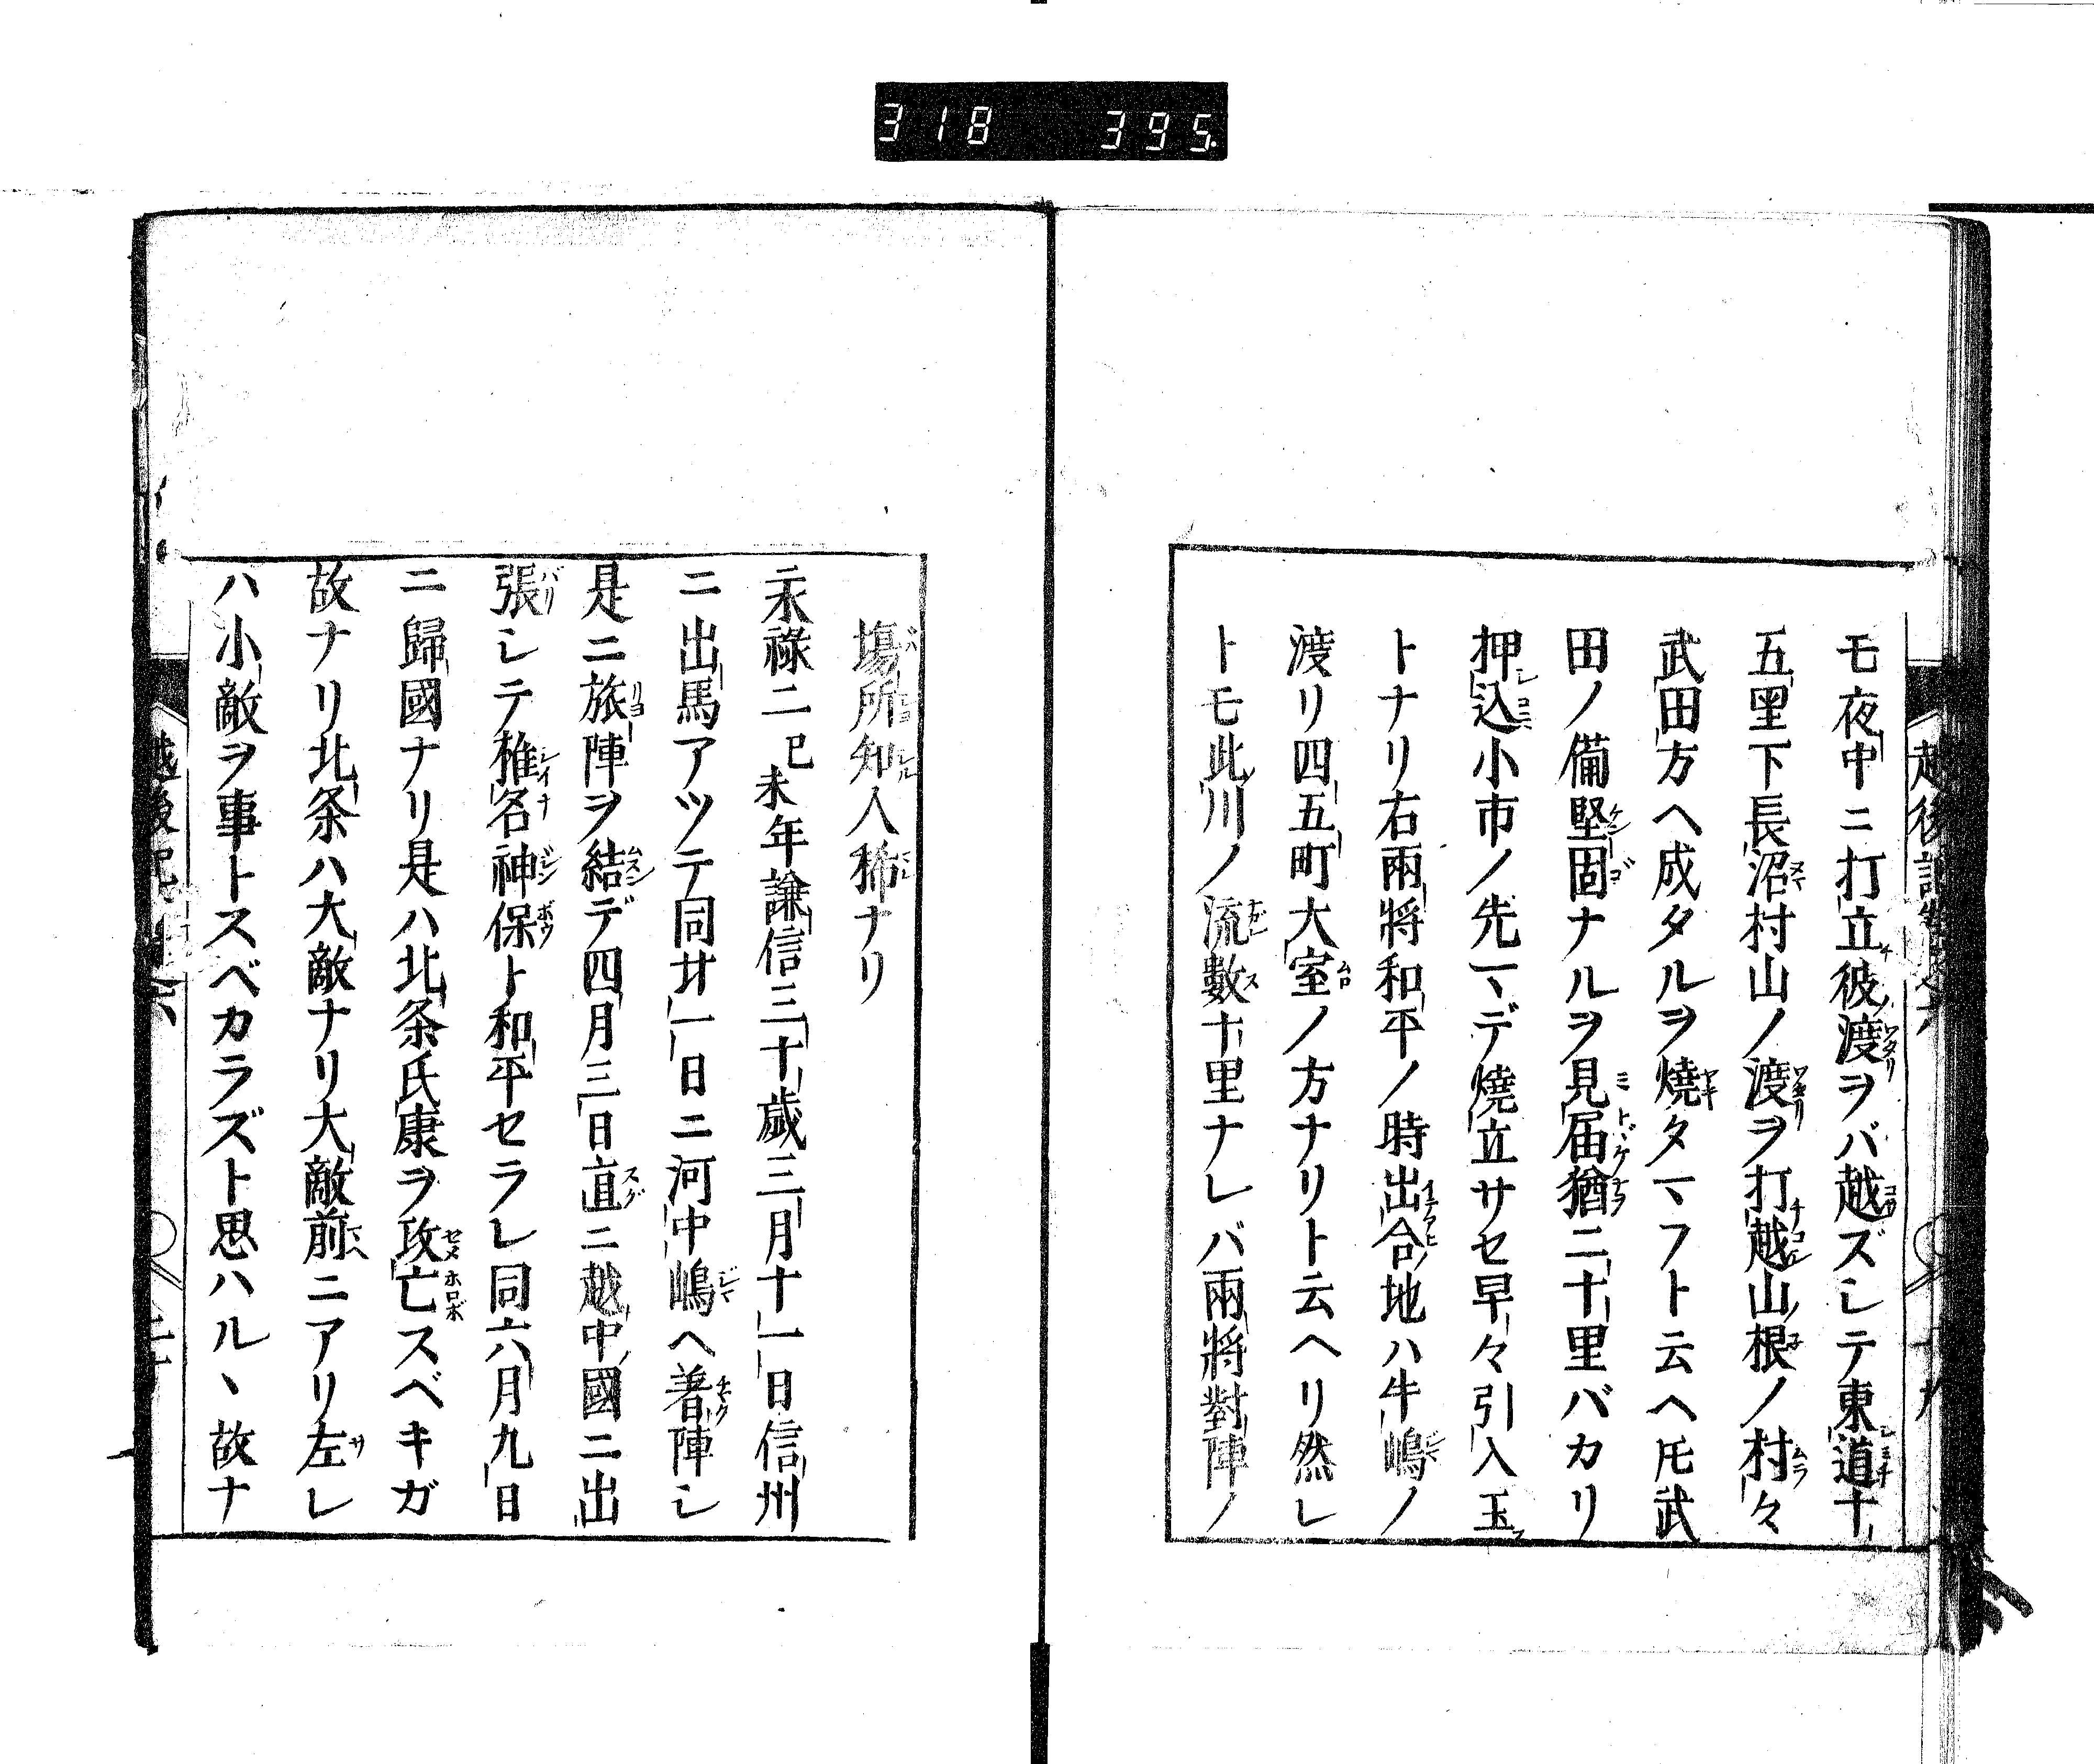 318 395
モ夜中ニ打立彼渡ヲバ越ズシテ東道十
五里下長沼村山ノ渡ヲ打越山根ノ村々
武田方ヘ成タルヲ燒タマフト云ヘ𪜈武
田ノ備堅固ナルヲ見届猶二十里バカリ
押込小市ノ先マデ燒立サセ早々引入玉
トナリ右兩將和平ノ時出合地ハ牛嶋ノ
渡リ四五町大室ノ方ナリト云ヘリ然シ
トモ此川ノ流數十里ナレバ兩將對陣ノ
塲所知人稀ナリ
永祿二己未年謙信三十歳三月十一日信州
ニ出馬アツテ同廿一日ニ河中嶋ヘ著陣シ
是ニ旅陣ヲ結デ四月三日直ニ越中國ニ出
張シテ椎名神保ト和平セラレ同六月九日
ニ歸國ナリ是ハ北条氏康ヲ攻亡スベキガ
故ナリ北条ハ大敵ナリ大敵前ニアリ左シ
ハ小敵ヲ事トスベカラズト思ハル丶故ナ